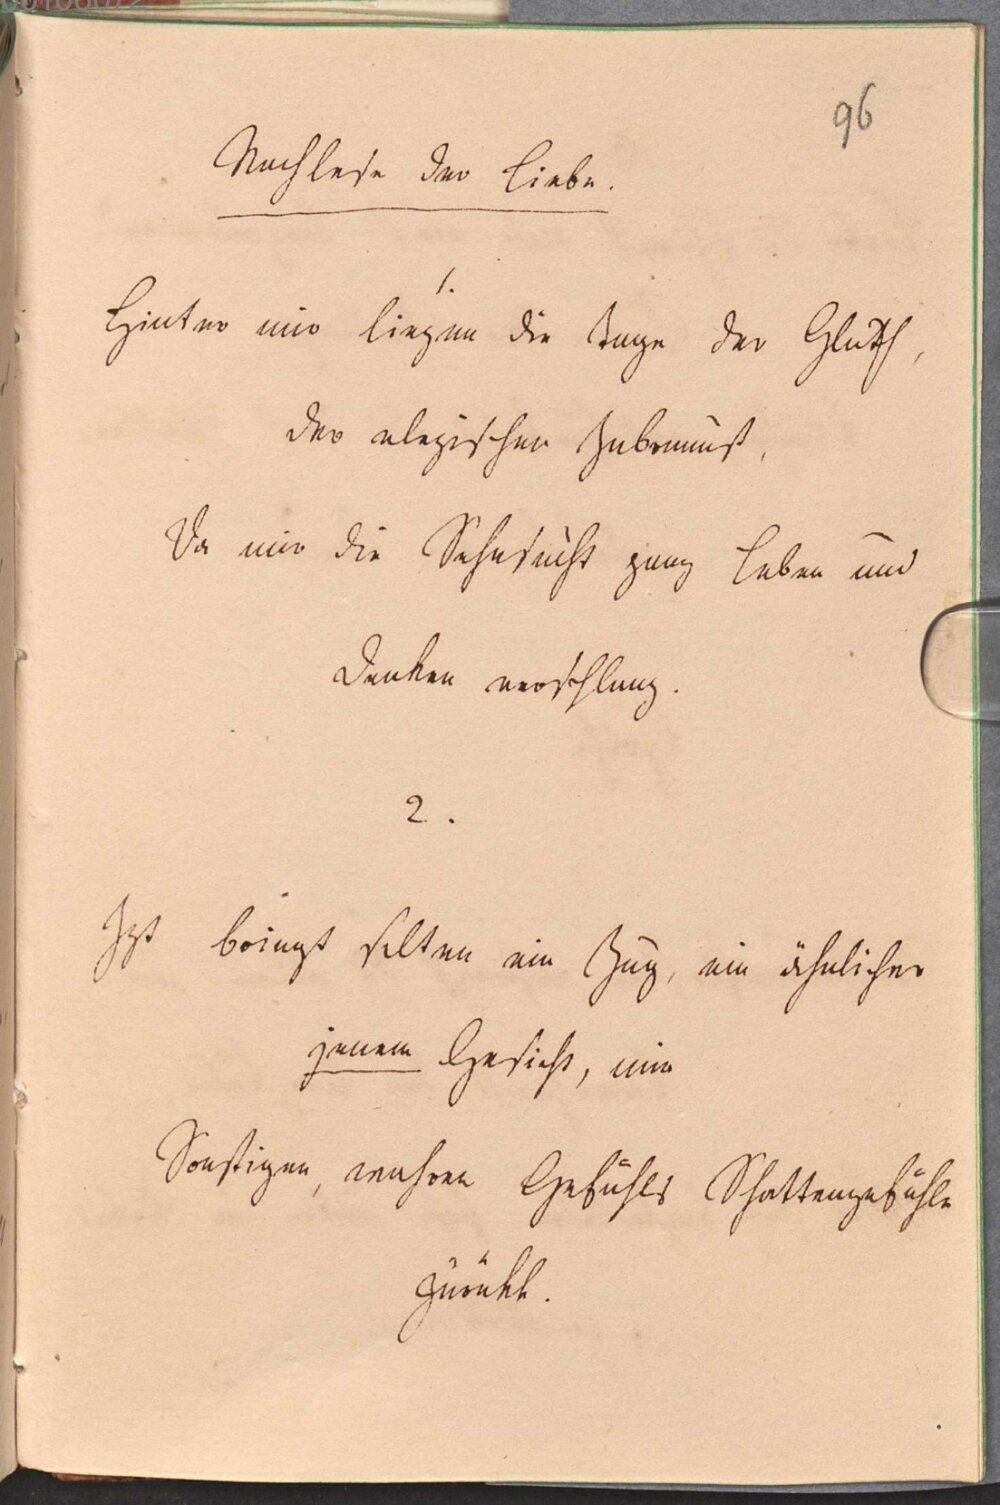 96
Nachlese der Liebe.
1.
Hinter mir liegen die Tage der Gluth,
der elegischen
Da mir die Sehnsucht ganz Leben und
Denken verschlang.
2.
Izt bringt selten ein Zug, ein ähnlicher
jenem Gesicht, mir
Sonstigen, wahren Gefühls Schattengefühle
zurükk.